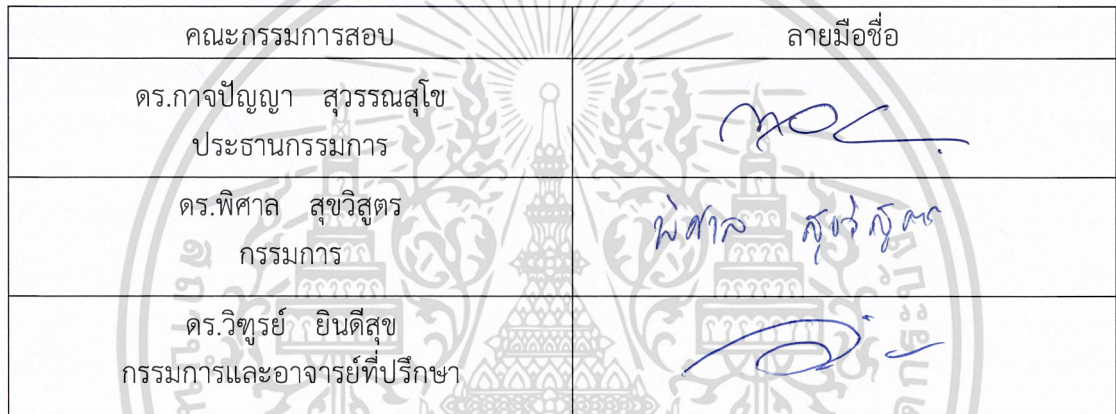 คณะกรรมการสอบ ลายมือชื่อ
ดร.กาจปัญญา สุวรรณสุโข
ประธานกรรมการ
ดร.พิศาล สุขวิสูตร พิศาล สุขวิสูตร
กรรมการ
ดร.วิฑูรย์ ยินดีสุข
กรรมการและอาจารย์ที่ปรึกษา